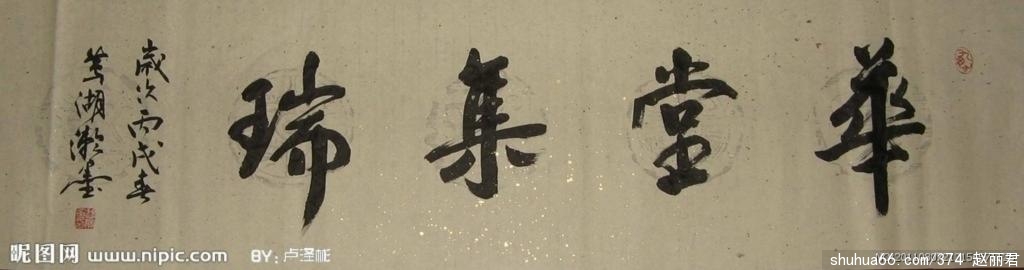 華堂集瑞
歲次丙戌春
昵图网 www.nipic.com BY: 卢泽彬
shuhua66.com/374 赵丽君